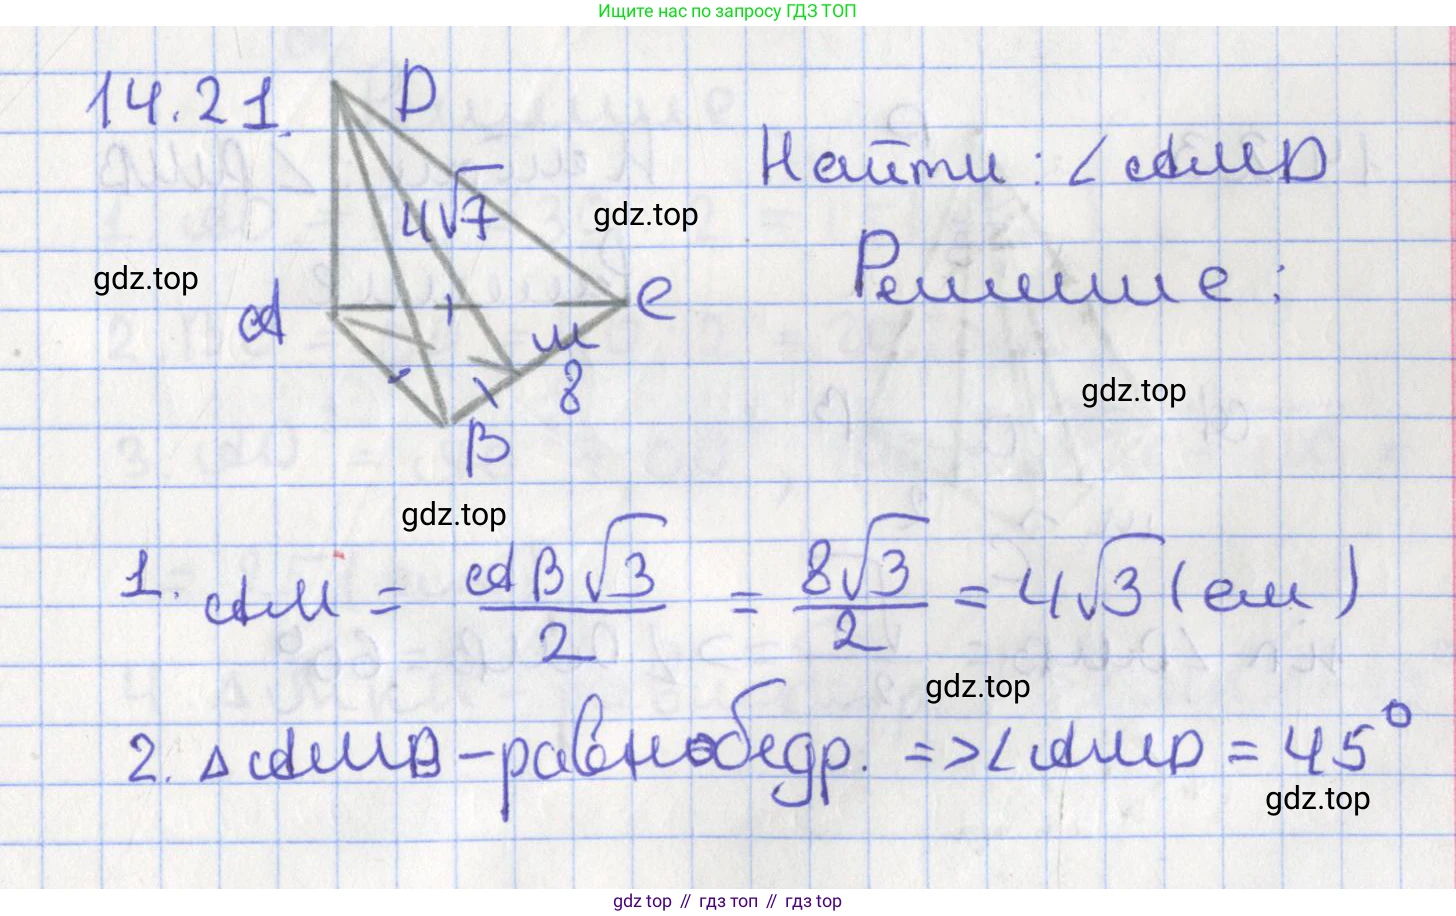 Ищите нас по запросу ГДЗ ТОП
14.21.
D
Найти: ∠AMD
4√7
gdz.top
Решение:
gdz.top
A
C
M
8
gdz.top
B
gdz.top
1. AM = AB√3/2 = 8√3/2 = 4√3 (см)
gdz.top
2. △AMB - равнобедр. => ∠AMD = 45°
gdz.top
gdz top // гдз топ // гдз top